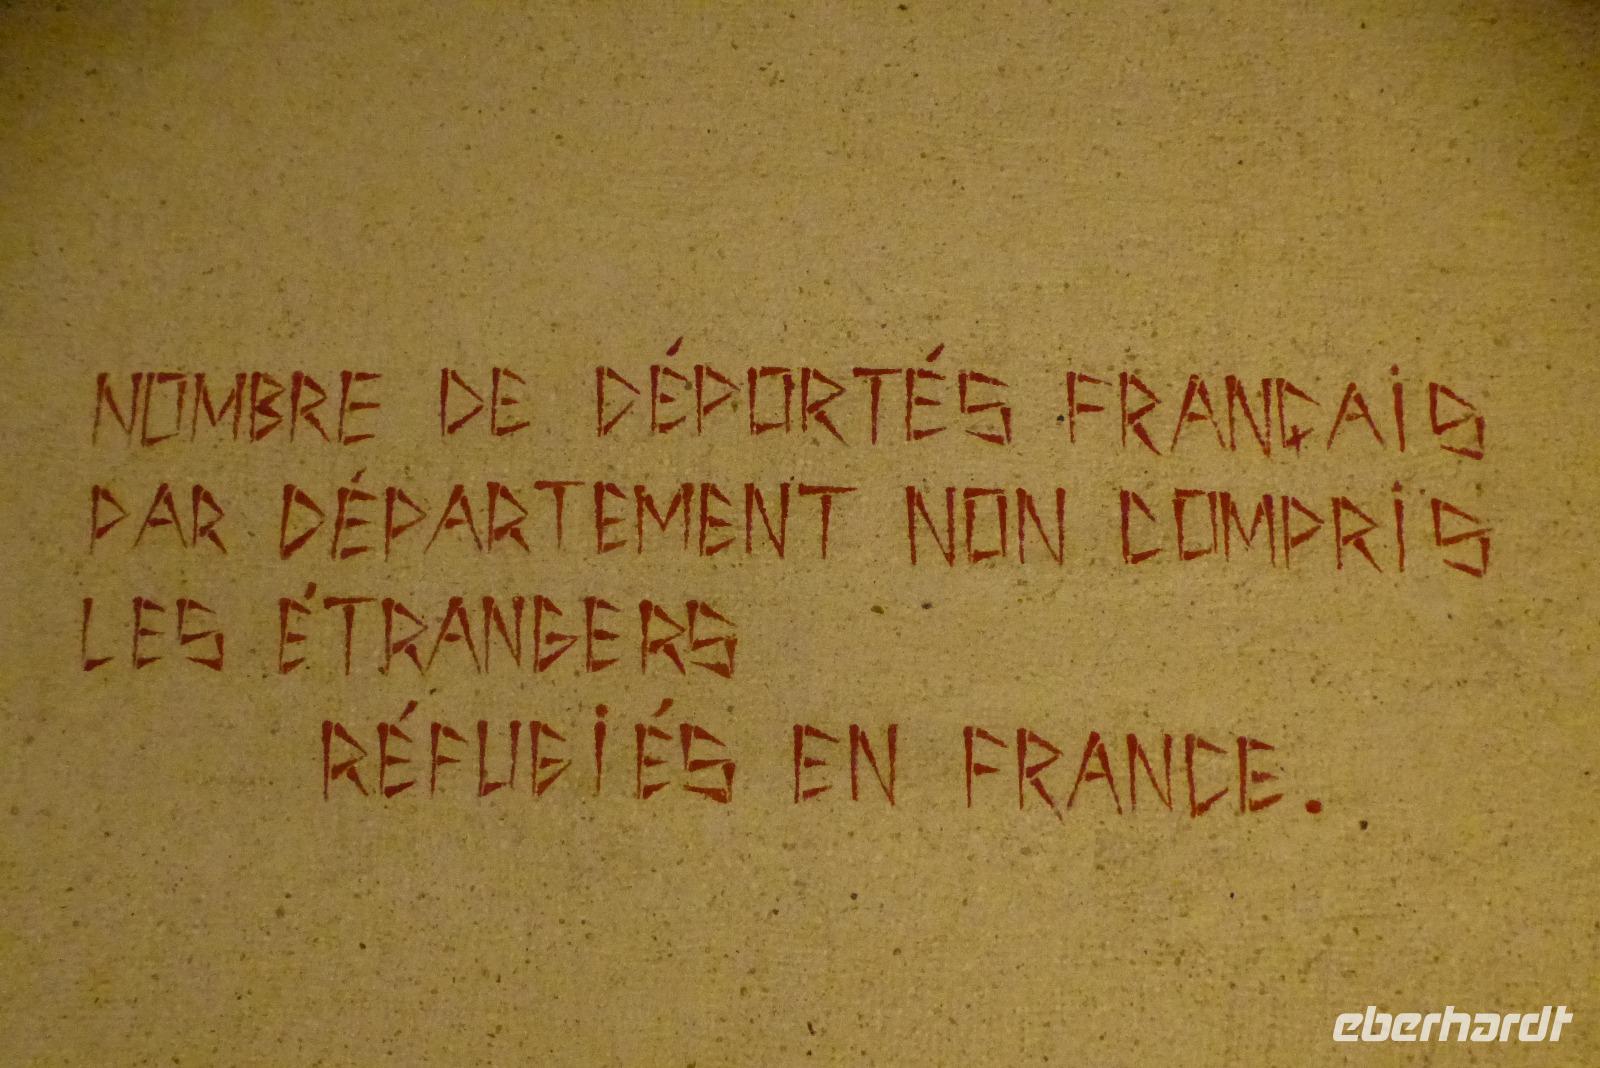 NOMBRE DE DÉPORTÉS FRANÇAIS
PAR DÉPARTEMENT NON COMPRIS
LES ÉTRANGERS
RÉFUGIÉS EN FRANCE.
eberhardt